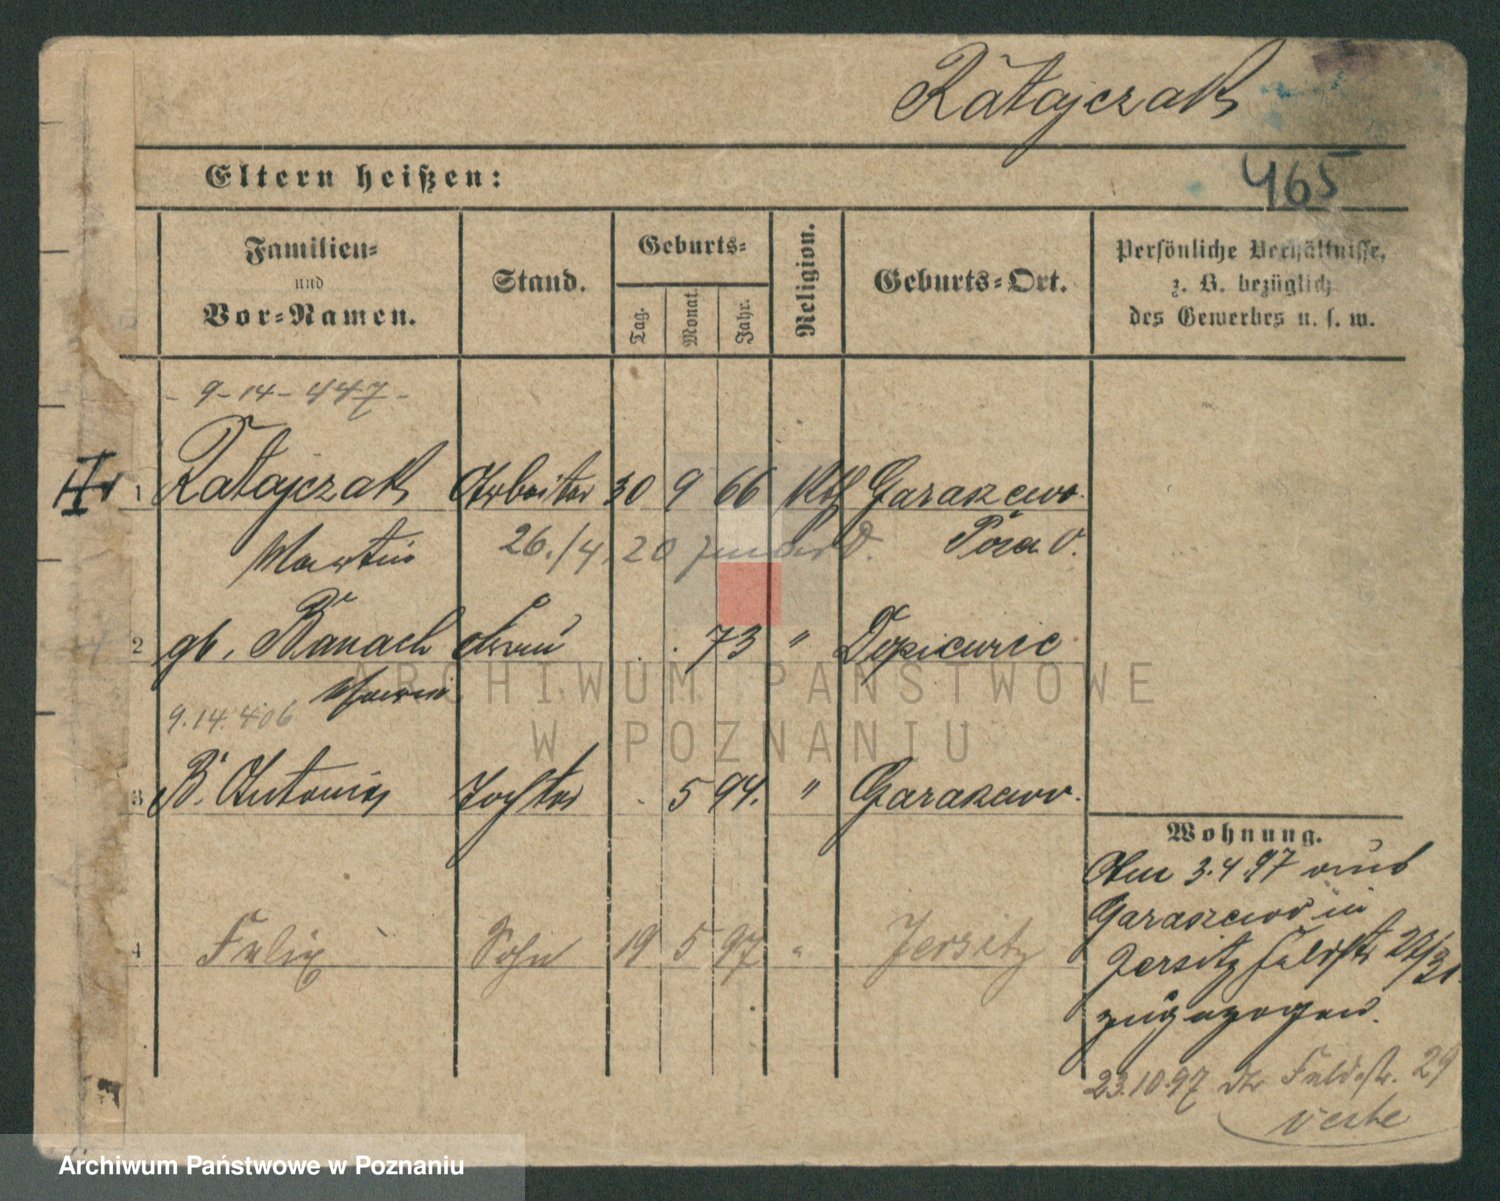 Ratajczak
465
Eltern heißen:
Familien- und Vor-Namen.
Stand.
Geburts-
Tag.
Monat.
Jahr.
Religion.
Geburts-Ort.
Persönliche Verhältnisse,
z. B. bezüglich
des Gewerbes u. s. w.
- 9-14-447-
1 Ratajczak Arbeiter 30 9 66 Kth Garaszewo
Martin 26./4. 20
2 gb. Banach Frau 73 " Dopiewiec
9.14.406
3 B. Antonia Tochter 5 94. " Garaszewo.
4 Felix Sohn 19 5 97 " Jersitz
Wohnung.
Am 3.4 97 aus
Garaszewo in
Jersitz Feldstr 29/31
zugezogen.
23.10 97 Feldstr. 29
ARCHIWUM PAŃSTWOWE
W POZNANIU
Archiwum Państwowe w Poznaniu